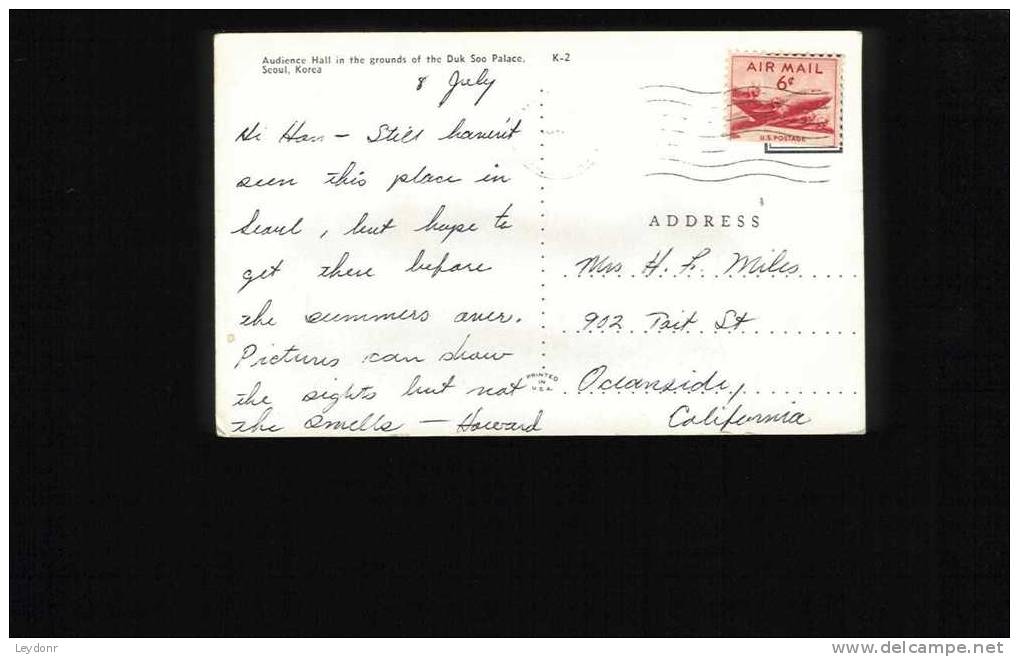 Audience Hall in the grounds of the Duk Soo Palace,
Seoul, Korea
K-2
8 July
Hi Hon – Still haven't
seen this place in
Seoul, but hope to
get there before
the summers over.
Pictures can show
the sights but not
the smells – Howard
PRINTED
IN
U.S.A.
AIR MAIL
6¢
U.S. POSTAGE
ADDRESS
Mrs H. F. Miles
902 Tait St
Oceanside,
California
Leydonr
www.delcampe.net